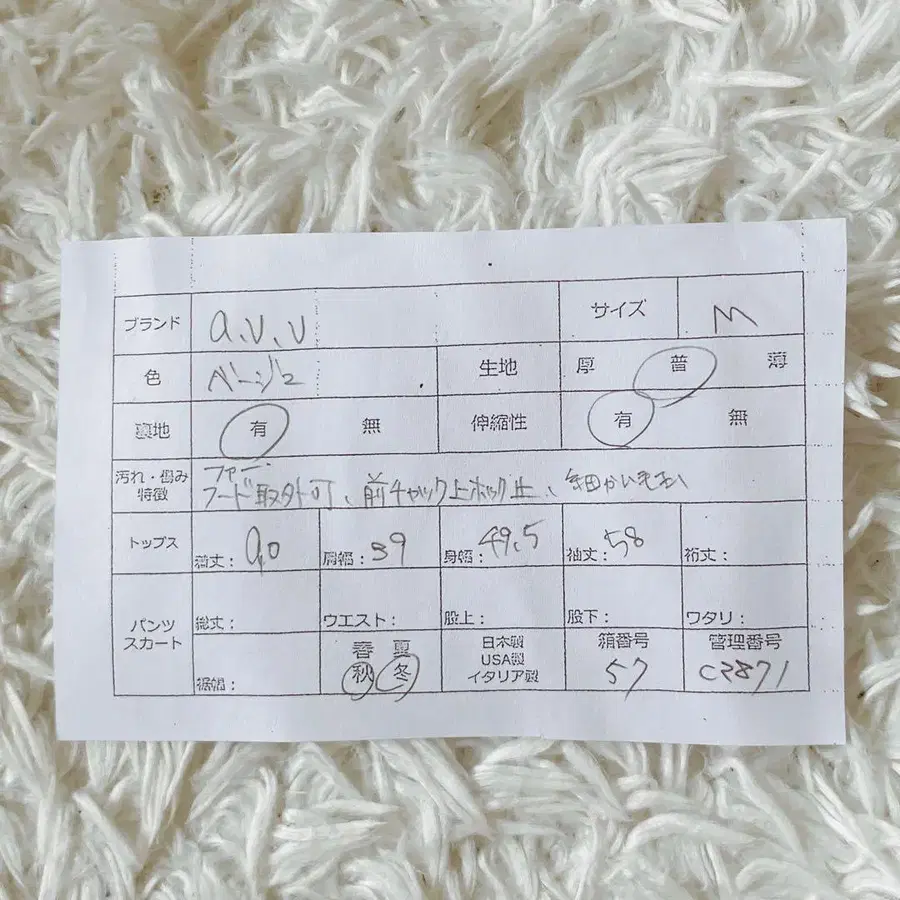 ブランド a.v.v サイズ M
色 ベージュ 生地 厚 普 薄
裏地 有 無 伸縮性 有 無
汚れ・傷み
特徴
ファー、
フード取外可、前チャック上ホック止、細かい毛玉
トップス 着丈: 90 肩幅: 39 身幅: 49.5 袖丈: 58 裄丈:
パンツ
スカート
総丈: ウエスト: 股上: 股下: ワタリ:
裾幅:
春 夏
秋 冬
日本製
USA製
イタリア製
箱番号
57
管理番号
C2871